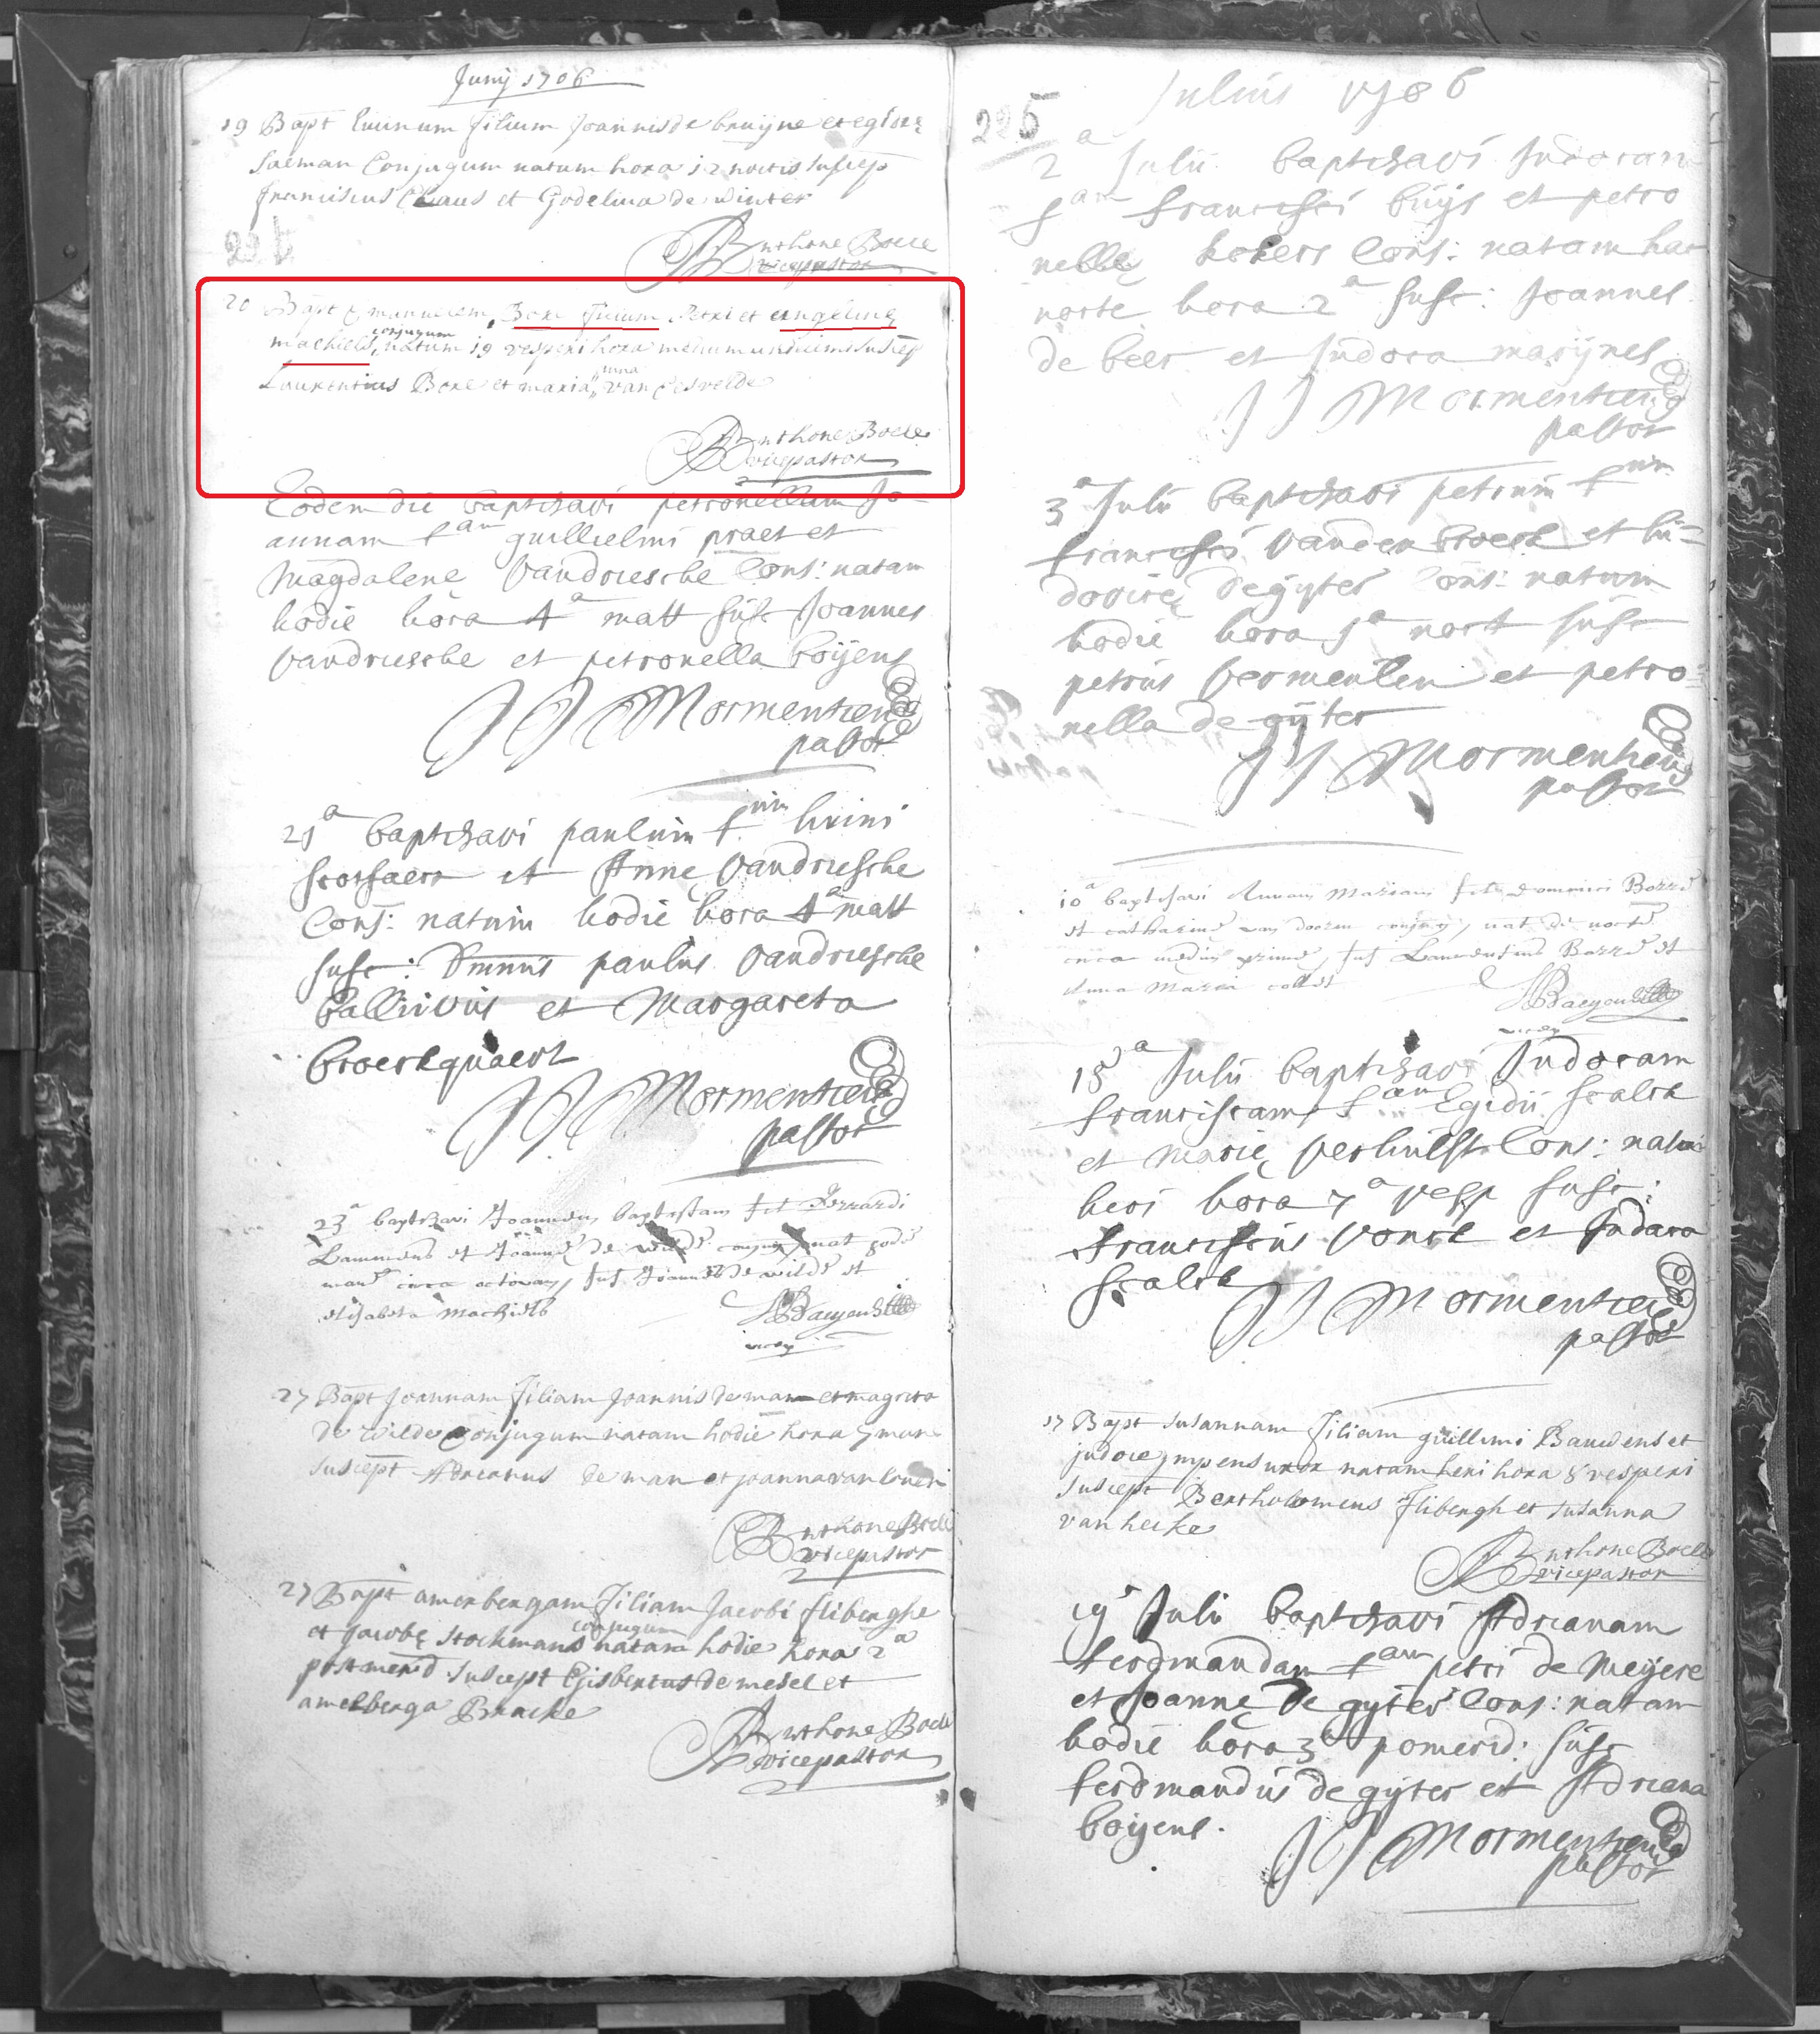 Junij 1706
19 Bapt livinum filium Joannis de bruijne et egidię
Saeman Conjugum natum hora 12 noctis Suscep
franciscus Claus et Godelina de Winter
Anthone Boele
vicepastor
224
20 Bapt Emanuelem Bore filium Petri et angelinę
conjugum
machiels natum 19 vesperi hora undecima Suscep
Laurentius Bore et maria van Desvelde
Anthone Boele
vicepastor
Eodem die baptisavi petronellam Jo-
annam fam guillielmi praet et
Magdalene Vandriessche Cons: natam
hodie hora 4a matt susc Joannes
Vandriessche et petronella boijens
JJ Mormentien
pastor
21a baptisavi paulum fum livini
scorsaert et Anne Vandriesche
Cons: natum hodie hora 4a matt
susc: Dmnus paulus Vandriesche
ballivus et Margareta
broeckquaert
JJ Mormentien
pastor
23a baptisavi Joannem baptistam fil Gerrardi
Lammens et Joannę de wilde conjug nat hodie
mane circa octavam, sus Joannes de wilde et
elisabeta Machiels
Baeyens
27 Bapt Joannam filiam Joannis de man et magreta
de Wilde Conjugum natam hodie hora 5 mane
suscept Adrianus de man et joanna van
Anthone Boele
vicepastor
27 Bapt amerbergam filiam Jacobi fliberghe
conjugum
et Jacobę Stockmans natam hodie hora 2a
postmerid Suscept Gisbertus de mesel et
amelberga Bracke
Anthone Boele
vicepastor
225 Julius 1706
2a Julii baptisavi Judocam
fam francisci buijs et petro
nelle kokers Cons: natam hac
nocte hora 2a susc: Joannes
de beer et Judoca marijnes
JJ Mormentien
pastor
3a Julii baptisavi petrum fum
francisci Vanden broeck et lu-
dovicę degijter Cons: natum
hodie hora 1a noct susc
petrus Vermeulen et petro-
nella de gijter
JJ Mormentien
pastor
10a baptisavi Annam Mariam fil dominici Borre
et catharinę van doorn conjug, nat de nocte
circa mediam primę, sus Laurentius Borre et
Anna Maria collet
Baeyens
15a Julii baptisavi Judocam
franciscam fam Egidii scalck
et Marie Verhulst Cons: natam
heri hora 7a vesp susc:
franciscus Vonck et Judoca
scalck
JJ Mormentien
pastor
17 Bapt Susannam filiam guillemi Bauwens et
judoce impens uxor natam heri hora 8 vesperi
Suscept Bertholomeus flibergh et Susanna
van hecke
Anthone Boele
vicepastor
19a Julii baptisavi Adrianam
ferdinandam fam petri de Meijere
et Joanne De gijter Cons: natam
hodie hora 3a pomerid: susc
ferdinandus de gijter et Adriana
boijens.
JJ Mormentien
pastor